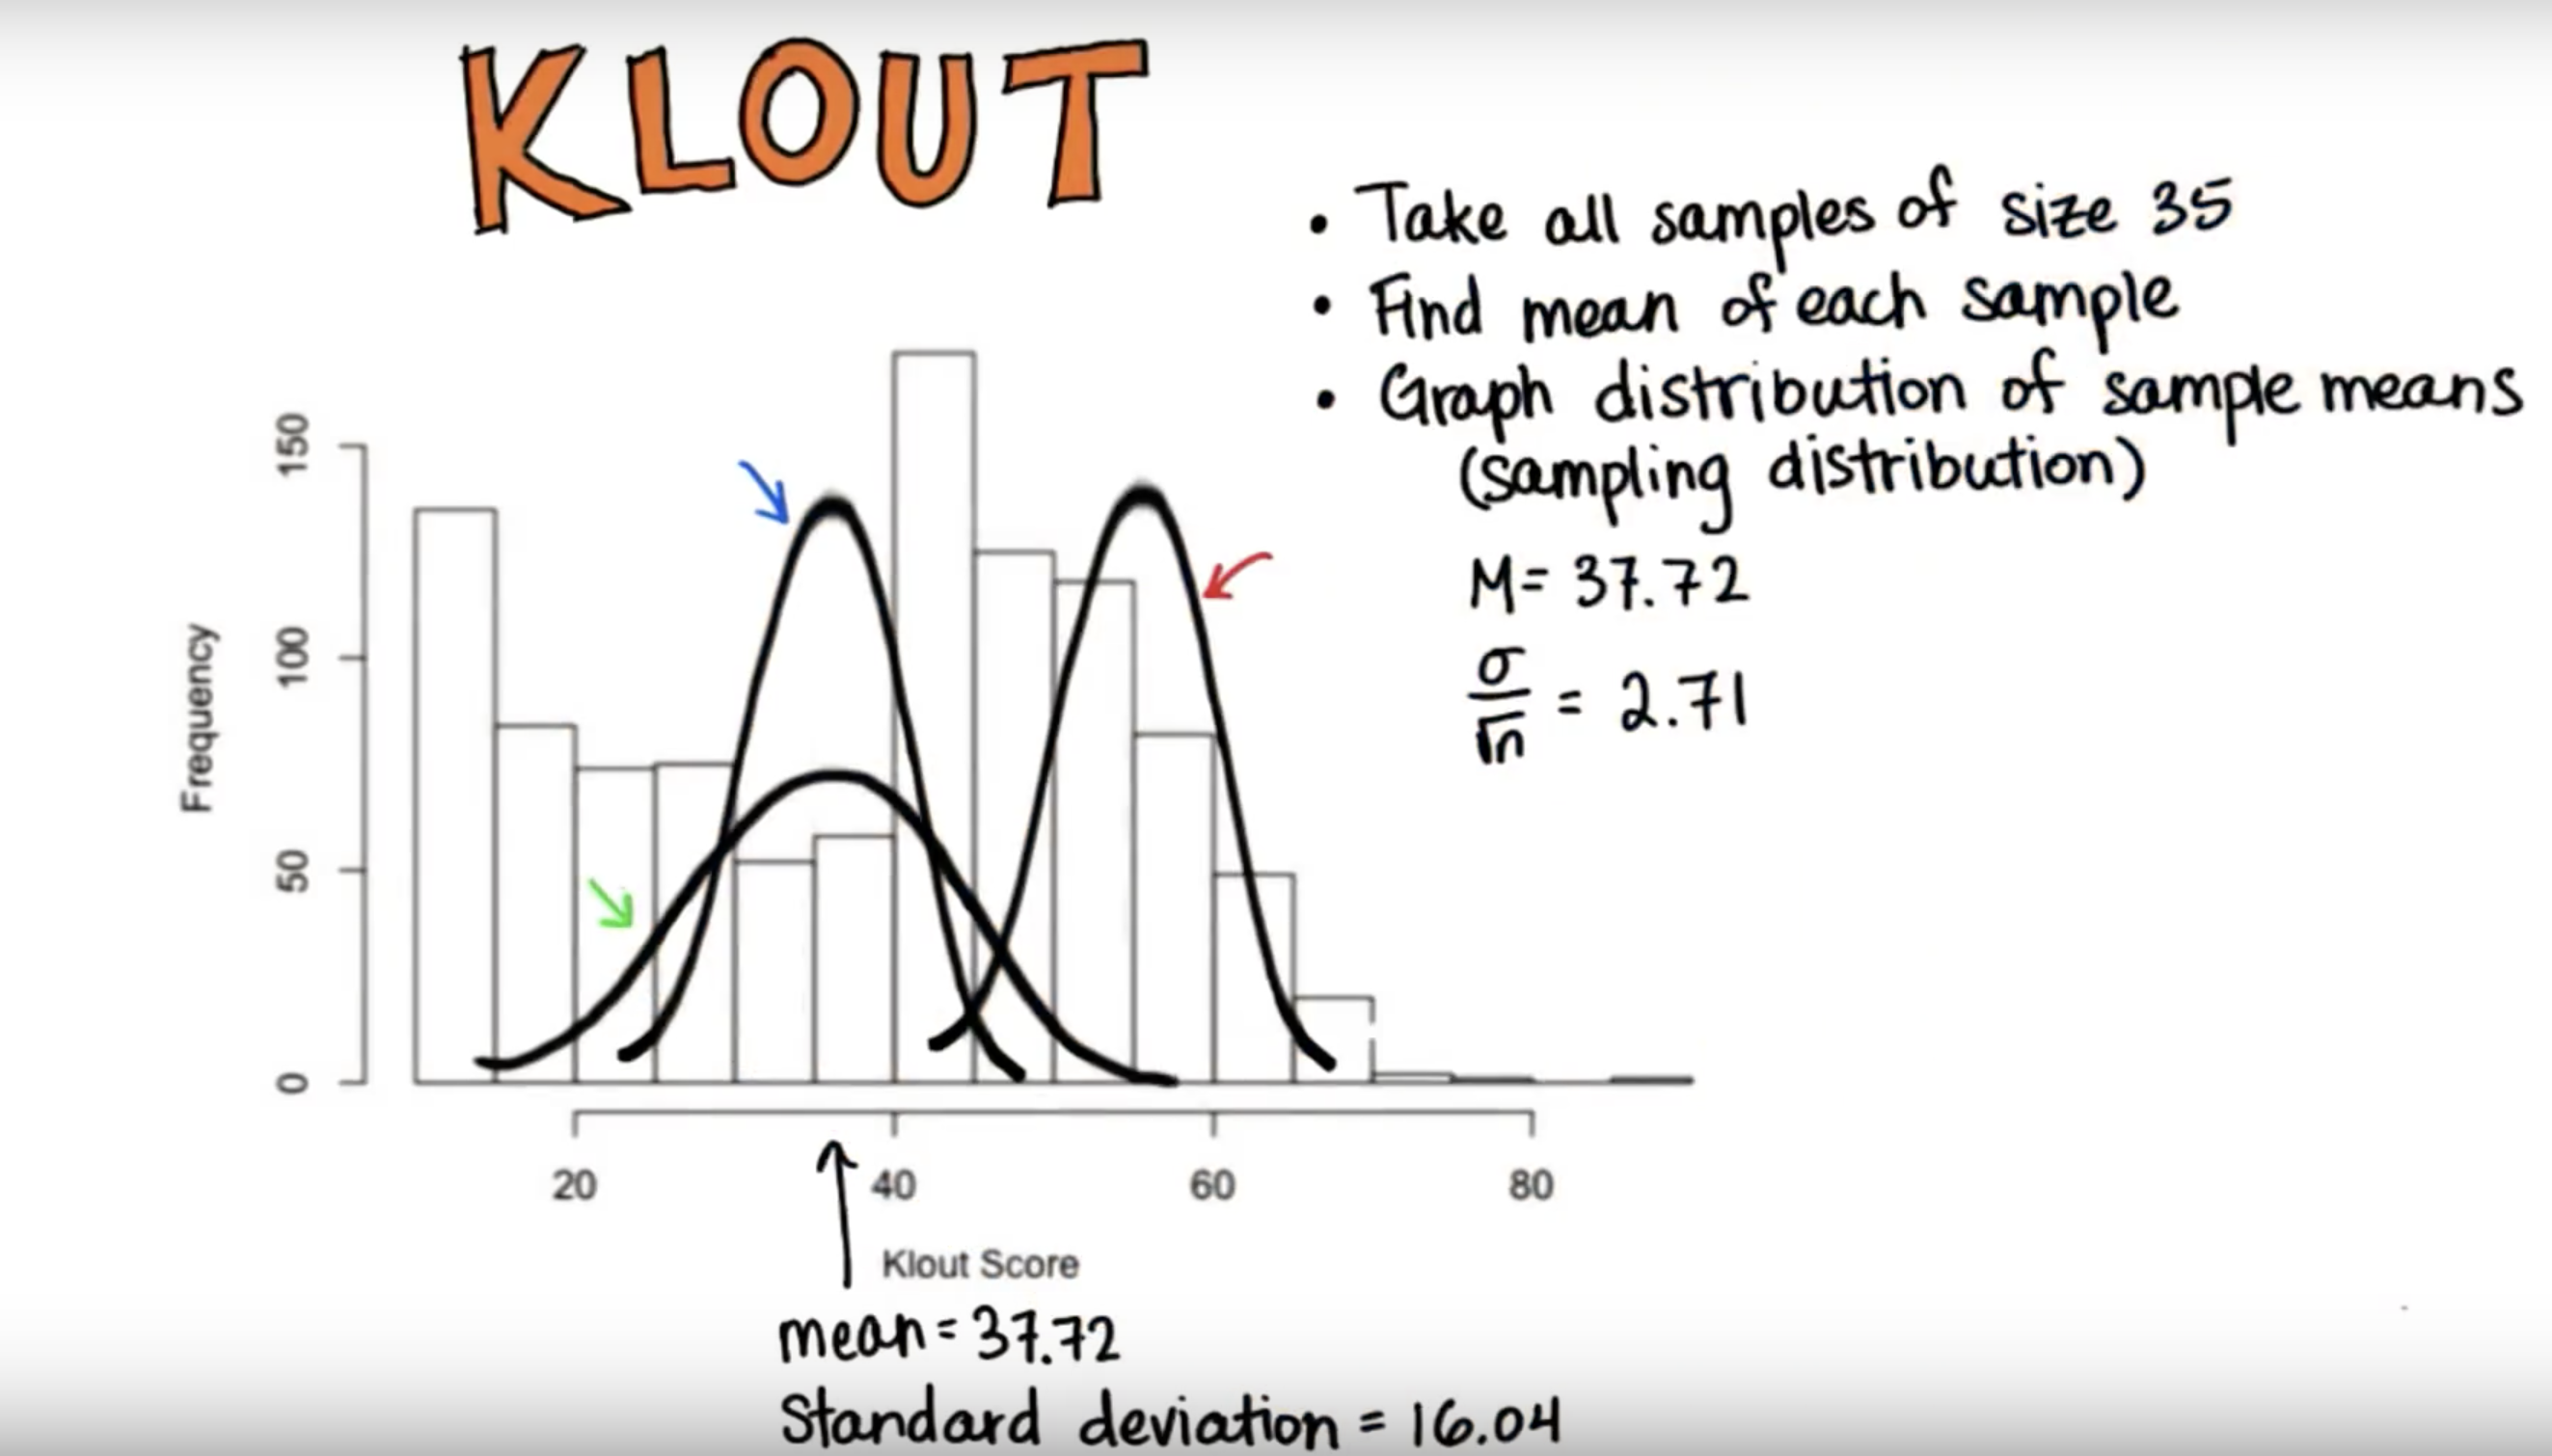 KLOUT
• Take all samples of size 35
• Find mean of each sample
• Graph distribution of sample means
(sampling distribution)
M = 37.72
σ
√n = 2.71
Frequency
150
100
50
0
20 40 60 80
Klout Score
mean = 37.72
Standard deviation = 16.04